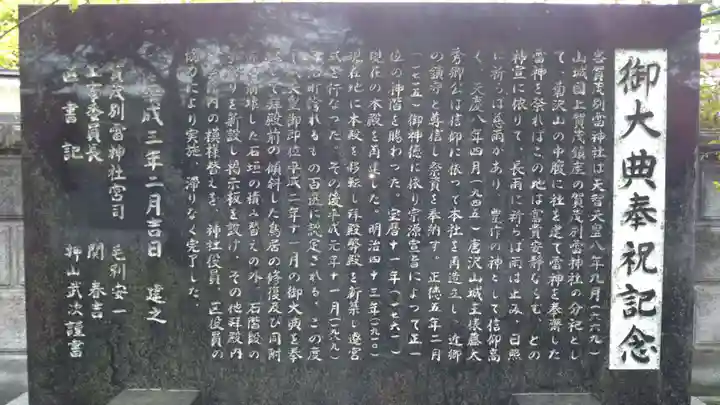 御大典奉祝記念
当賀茂別雷神社は天智天皇八年九月(六六九)
山城国上賀茂鎮座の賀茂別雷神社の分祀とし
て、菊沢山の中腹に社を建て雷神を奉斎した
雷神を祭ればこの地は富貴安静ならむ、との
神宣に依りて、長雨に祈らば雨は止み、日照
に祈らば慈雨があり、豊作の神として信仰高
く、天慶八年四月(九四五)唐沢山城主俵藤太
秀郷公は信仰に依って本社を再造立し、近郷
の鎮守と尊信し祭資を奉納す。正徳五年二月
(一七一五)御神徳に依り宗源宣旨によつて正一
位の神階を賜わった。宝暦十一年(一七六一)
現在の本殿を再建した。明治四十三年(一九一〇)
現在地に本殿を移転し拝殿幣殿を新築し遷宮
式を行なつた。その後平成元年十一月(一九八九)
町除れるもの百選に設定される、この度
天皇御即位平成二年十一月の御大典を奉
して拝殿前の傾斜した鳥居の修復及び同附
崩壊した石垣の積み替えの外、石階段の
りを新設し掲示板を設け、その他拝殿内
内の模様替えを、神社役員、区役員の
協力により実施、滞りなく完了した。
平成三年二月吉日 建之
賀茂別雷神社宮司 毛別安一
委員長 関 春吉
区書記 押山武次謹書